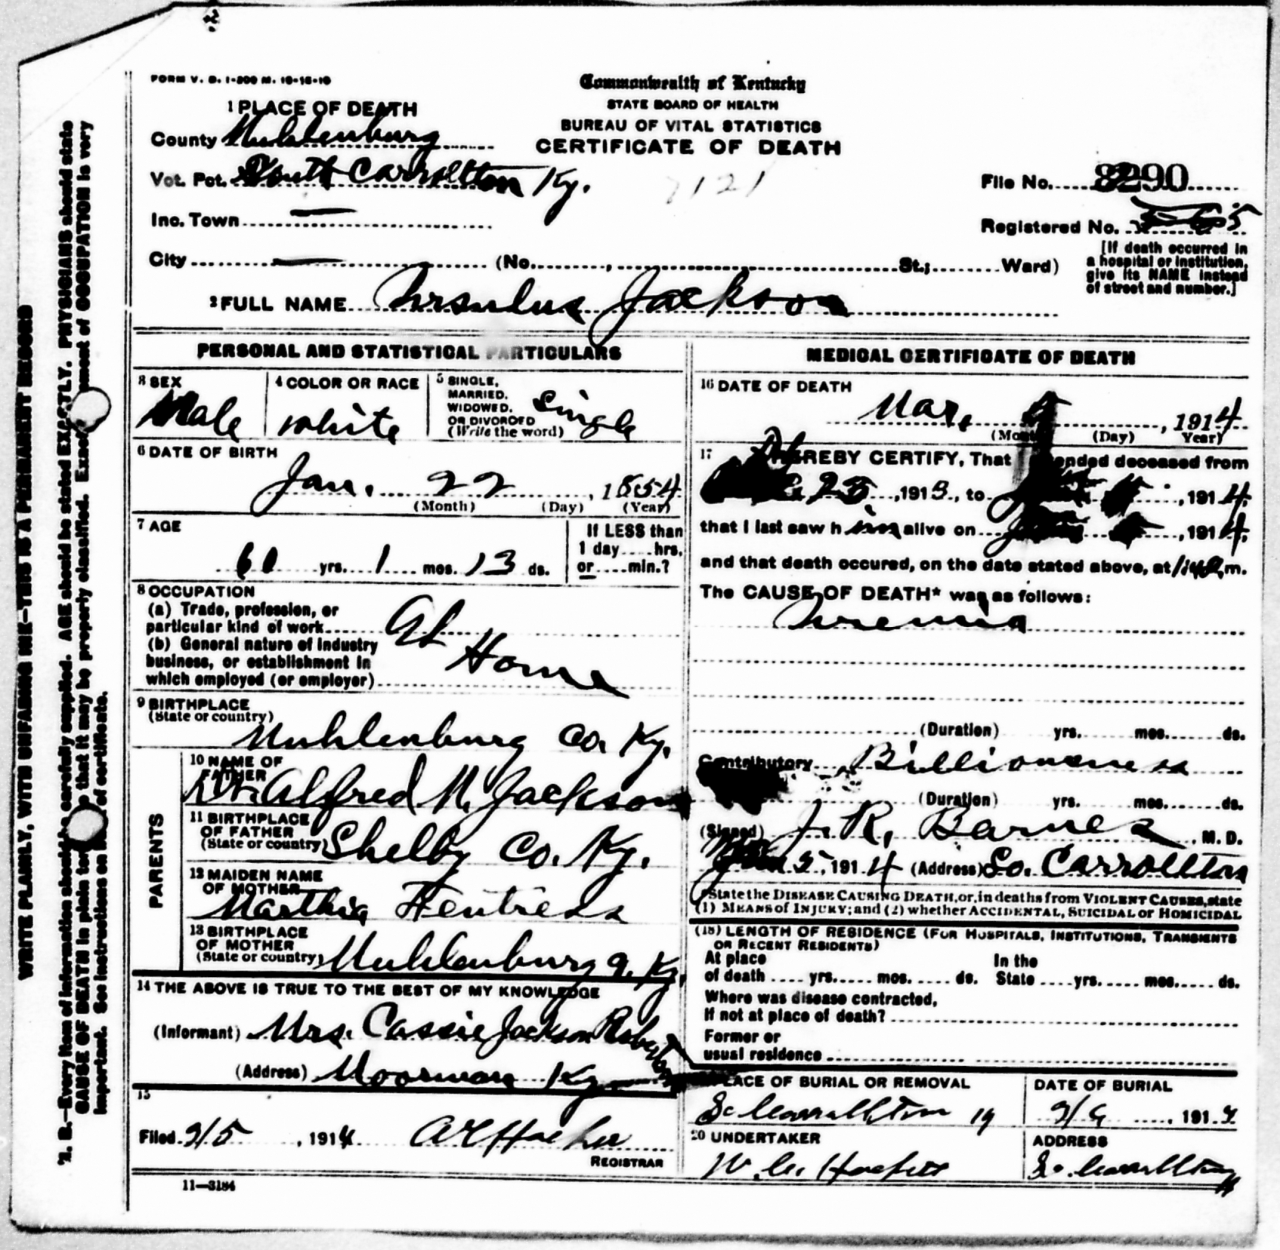 FORM V. S. 1-200 M. 10-16-10
Commonwealth of Kentucky
STATE BOARD OF HEALTH
BUREAU OF VITAL STATISTICS
CERTIFICATE OF DEATH
1 PLACE OF DEATH
County Muhlenburg
Vot. Pct. South Carrollton Ky.
Inc. Town
City (No. , St.; Ward)
7121
File No. 8290
Registered No.
[If death occurred in
a hospital or institution,
give its NAME instead
of street and number.]
2 FULL NAME Ursulus Jackson
PERSONAL AND STATISTICAL PARTICULARS
3 SEX
Male
4 COLOR OR RACE
White
5 SINGLE,
MARRIED,
WIDOWED,
OR DIVORCED
(Write the word)
Single
6 DATE OF BIRTH
Jan. 22, 1854
(Month) (Day) (Year)
7 AGE
60 yrs. 1 mos. 13 ds.
If LESS than
1 day....hrs.
or.....min.?
8 OCCUPATION
(a) Trade, profession, or
particular kind of work
(b) General nature of industry
business, or establishment in
which employed (or employer)
At Home
9 BIRTHPLACE
(State or country)
Muhlenburg Co. Ky.
PARENTS
10 NAME OF
FATHER
Dr. Alfred N. Jackson
11 BIRTHPLACE
OF FATHER
(State or country)
Shelby Co. Ky.
12 MAIDEN NAME
OF MOTHER
Marthia Fentress
13 BIRTHPLACE
OF MOTHER
(State or country)
Muhlenburg Ky.
14 THE ABOVE IS TRUE TO THE BEST OF MY KNOWLEDGE
(Informant) Mrs. Cassie Jackson
(Address) Moorman Ky
15
Filed 2/5, 1914
REGISTRAR
11-3184
MEDICAL CERTIFICATE OF DEATH
16 DATE OF DEATH
Mar. , 1914
(Month) (Day) Year)
17 HEREBY CERTIFY, That attended deceased from
25, 1913, to , 1914,
that I last saw him alive on , 1914,
and that death occured, on the date stated above, at m.
The CAUSE OF DEATH* was as follows:
Uremia
(Duration) yrs. mos. ds.
Contributory Billiousness
(Duration) yrs. mos. ds.
(Signed) J. R. Barnes M. D.
5, 1914 (Address) So. Carrollton
State the DISEASE CAUSING DEATH, or, in deaths from VIOLENT CAUSES, state
(1) MEANS of INJURY; and (2) whether ACCIDENTAL, SUICIDAL or HOMICIDAL
(18) LENGTH OF RESIDENCE (FOR HOSPITALS, INSTITUTIONS, TRANSIENTS
OR RECENT RESIDENTS)
At place In the
of death yrs. mos. ds. State yrs. mos. ds.
Where was disease contracted,
If not at place of death?
Former or
usual residence
PLACE OF BURIAL OR REMOVAL
So Carrollton Ky
DATE OF BURIAL
, 191
20 UNDERTAKER
ADDRESS
So. Carrollton
WRITE PLAINLY, WITH UNFADING INK—THIS IS A PERMANENT RECORD
N. B.—Every item of information should be carefully supplied. AGE should be stated EXACTLY. PHYSICIANS should state
CAUSE OF DEATH in plain terms, so that it may be properly classified. Exact statement of OCCUPATION is very
important. See instructions on back of certificate.